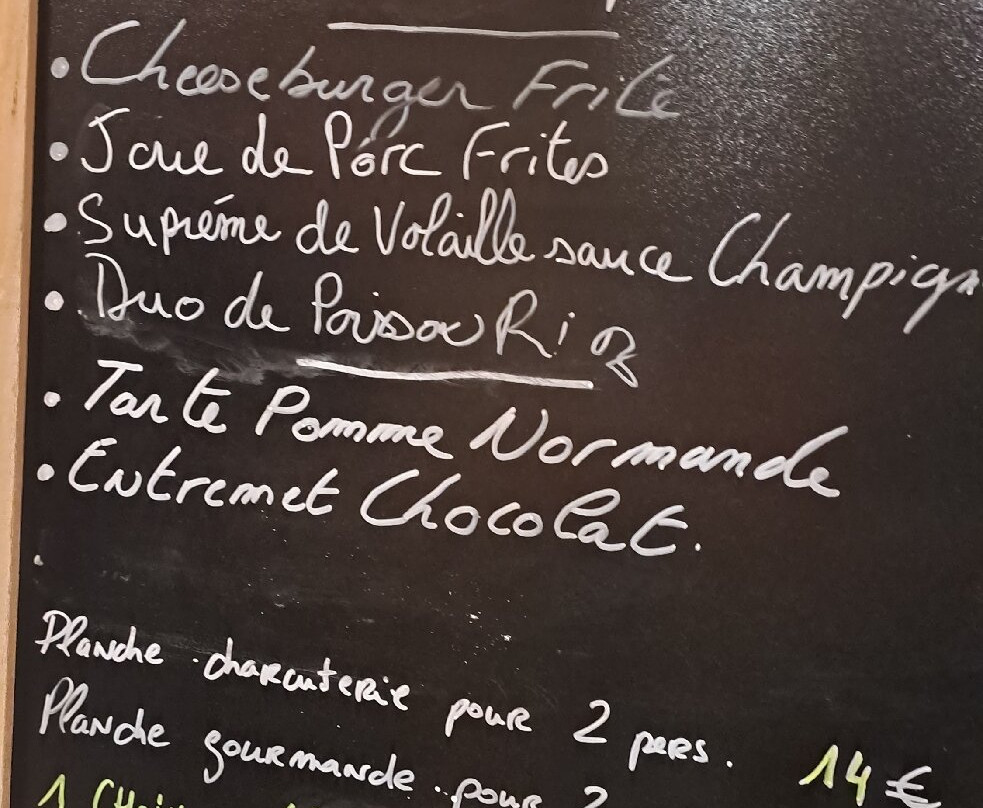 • Cheeseburger Frite
• Joue de Porc Frites
• Supréme de Volaille sauce Champign
• Duo de Poisson Riz
• Tarte Pomme Normande
• Entremet Chocolat.
Planche charcuterie pour 2 pers. 14 €
Planche gourmande pour 2
1